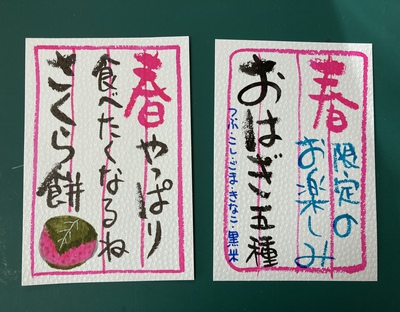 春やっぱり
食べたくなるね
さくら餅
春限定の
お楽しみ
おはぎ・五種
つぶ・こし・ごま・きなこ・黒米